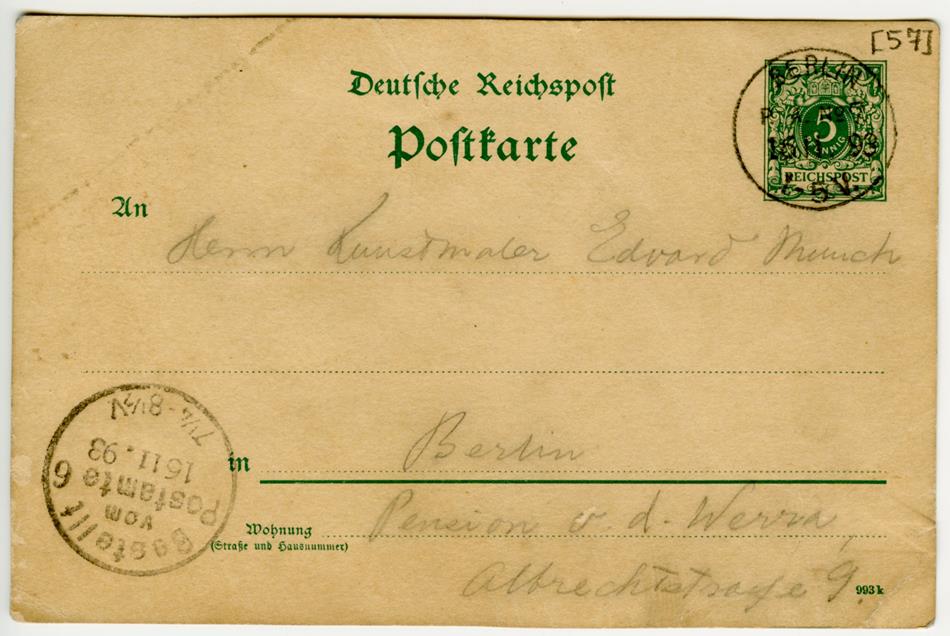 [57]
Deutsche Reichspost
Postkarte
BERLIN
93
5-6 V.
5
PFENNIG
REICHSPOST
An
Herrn Kunstmaler Edvard Munch
in Berlin
Wohnung
(Straße und Hausnummer)
Pension v. d. Werra,
Albrechtstraße 9.
993k
Bestellt
vom
Postamte 6
16 11. 93
7¼-8½N